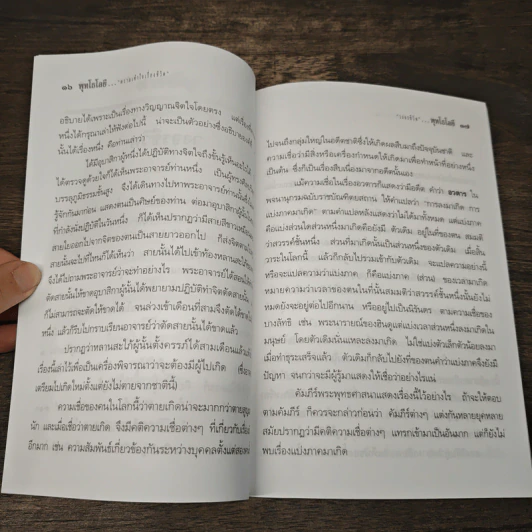 ๑๖ พุทโธโลยี...
อธิบายได้เพราะเป็นเรื่องทางวิญญาณจิตใจโดยตรง แต่เรื่อง
หนึ่งได้กรุณาเล่าให้ฟังต่อไปนี้ น่าจะเป็นตัวอย่างซึ่งอธิบาย
นั้นได้เรื่องหนึ่ง คือท่านเล่าว่า
ได้มีอุบาสิกาผู้หนึ่งได้ปฏิบัติทางจิตใจถึงขั้นรู้เห็น
ได้ตรวจดูด้วยใจก็ได้เห็นพระอาจารย์ท่านหนึ่ง เป็นผู้ทรง
บรรลุภูมิธรรมขั้นสูง จึงได้เดินทางไปหาพระอาจารย์ท่านนั้น
รู้จักกันมาก่อน แสดงตนเป็นศิษย์ของท่าน ต่อมาอุบาสิกาผู้นั้น
ที่กำลังนั่งปฏิบัติในวันหนึ่ง ก็ได้เห็นปรากฏว่ามีสายสีขาว
สายใยออกไปจากจิตของตนเป็นสายยาวออกไป ก็ส่งจิตตาม
สายนั้นจะไปที่ไหนก็ได้เห็นว่า สายนั้นได้ไปเข้าท้องหลานสะใภ้
จึงได้ไปถามพระอาจารย์ว่าจะทำอย่างไร พระอาจารย์ได้สอน
ตัดสายนั้นให้ขาดอุบาสิกาผู้นั้นได้พยายามปฏิบัติทำจิตตัดสายนั้น
ก็ไม่สามารถจะตัดให้ขาดได้ จนล่วงเข้าเดือนที่สามจึงตัดได้ขาด
หนึ่ง แล้วก็รีบไปกราบเรียนอาจารย์ว่าตัดสายนั้นได้ขาดแล้ว
ปรากฏว่าหลานสะใภ้ผู้นั้นตั้งครรภ์ได้สามเดือนแล้ว
เรื่องนี้เล่าไว้เพื่อเป็นเครื่องพิจารณาว่าจะต้องมีผู้ไปเกิด
เตรียมไปเกิดใหม่(ตั้งแต่ยังไม่ตายจากชาตินี้)
ความเชื่อของคนในโลกนี้ว่าตายเกิดน่าจะมากกว่าตายสูญ
นัก และเมื่อเชื่อว่าตายเกิด จึงมีคติความเชื่อต่างๆ ที่เกี่ยวกับเรื่อง
อีกมาก เช่น ความสัมพันธ์เกี่ยวข้องกันระหว่างบุคคลตั้งแต่สอง
... พุทโธโลยี ๑๗
ไปจนถึงกลุ่มใหญ่ในอดีตชาติซึ่งให้เกิดผลสืบมาถึงปัจจุบันชาติ และ
ความเชื่อว่ามีสิ่งหรือเครื่องกำหนดให้เกิดมาเพื่อทำหน้าที่อย่างหนึ่ง
เป็นต้น ซึ่งก็เป็นเรื่องสืบเนื่องมาจากอดีตนั้นเอง
แม้ความเชื่อในเรื่องอวตารก็แสดงว่ามีอดีต คำว่า อวตาร ใน
พจนานุกรมฉบับราชบัณฑิตยสถาน ให้คำแปลว่า "การลงมาเกิด การ
แบ่งภาคมาเกิด" ตามคำแปลหลังแสดงว่าไม่ได้มาทั้งหมด แต่แบ่งภาค
คือแบ่งส่วนใดส่วนหนึ่งมาเกิดคือยังมี ตัวเดิม อยู่ในที่ของตน สมมติ
ว่าสวรรค์ชั้นหนึ่ง ส่วนที่มาเกิดนั้นเป็นส่วนหนึ่งของตัวเดิม เมื่อสิ้น
วาระในโลกนี้ แล้วก็กลับไปรวมเข้ากับตัวเดิม จะแปลความอย่างนี้
หรือจะแปลความว่าแบ่งภาค ก็คือแบ่งภาค (ส่วน) ของเวลามาเกิด
หมายความว่าเวลาของตนในที่นั้นสมมติว่าสวรรค์ชั้นหนึ่งนั้นยังไม่
หมดยังจะอยู่ต่อไปอีกนาน หรืออยู่ไปเป็นนิรันดร ตามความเชื่อของ
บางลัทธิ เช่น พระนารายณ์ของฮินดูแต่แบ่งเวลาส่วนหนึ่งลงมาเกิดใน
มนุษย์ โดยตัวเดิมนั่นแหละลงมาเกิด ไม่ใช่แบ่งตัวเล็กตัวน้อยลงมา
เมื่อทำธุระเสร็จแล้ว ตัวเดิมก็กลับไปยังที่ของตนคำว่าแบ่งภาคจึงยังมี
ปัญหา จนกว่าจะมีผู้รู้มาแสดงให้เชื่อว่าอย่างไรแน่
คัมภีร์พระพุทธศาสนาแสดงเรื่องนี้ไว้อย่างไร ถ้าจะให้ตอบ
ตามคัมภีร์ ก็ควรจะกล่าวก่อนว่า คัมภีร์ต่างๆ แต่งกันหลายยุคหลาย
สมัยปรากฏว่ามีคติความเชื่อต่างๆ แทรกเข้ามาเป็นอันมาก แต่ก็ยังไม่
พบเรื่องแบ่งภาคมาเกิด